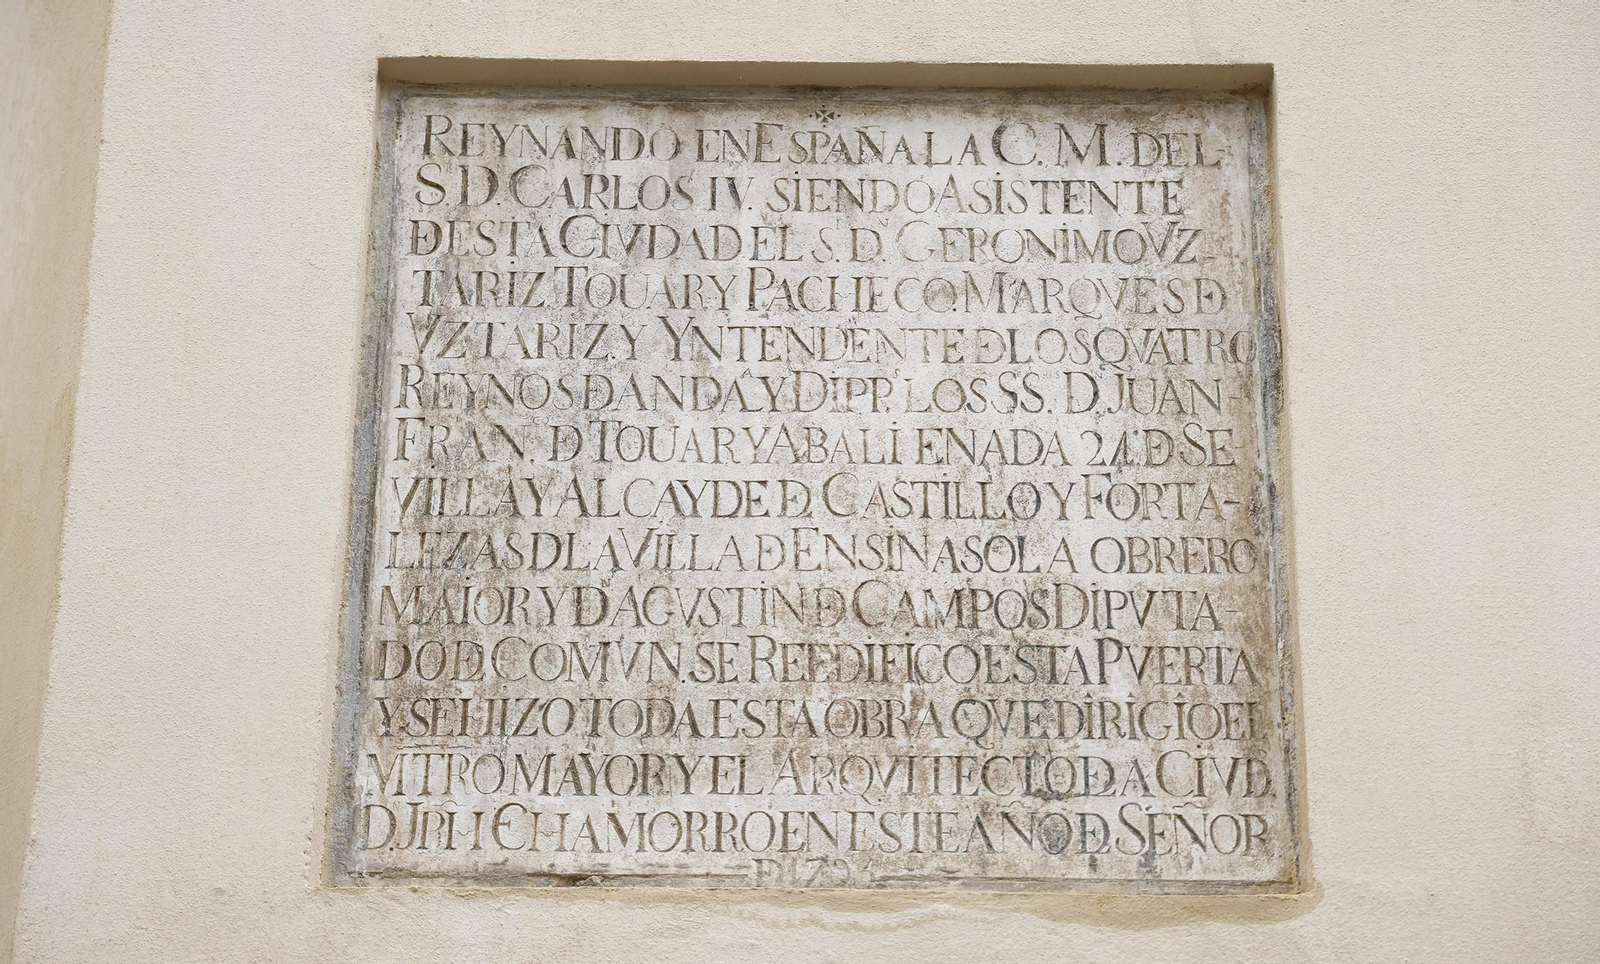 REYNANDO EN ESPAÑA LA C. M. DEL
S. D. CARLOS IV. SIENDO ASISTENTE
DESTA CIVDAD EL S. D. GERONIMO VZ-
TARIZ TOUAR Y PACHECO. MARQVES D
VZTARIZ. Y YNTENDENTE D LOS QVATRO
REYNOS D ANDA. Y DIPP.s LOS SS. D. JUAN-
FRAN. D TOUAR Y ABALIENADA 24. D SE-
VILLA Y ALCAYDE D CASTILLO Y FORTA-
LEZAS D LA VILLA D ENSINASOLA OBRERO
MAIOR Y D. AGVSTIN D CAMPOS DIPVTA-
DO D COMVN. SE REEDIFICO ESTA PVERTA
Y SE HIZO TODA ESTA OBRA QVE DIRIGIO EL
MTRO MAYOR Y EL ARQVITECTO D A CIVD.
D. JPH CHAMORRO EN ESTE AÑO D SEÑOR
D